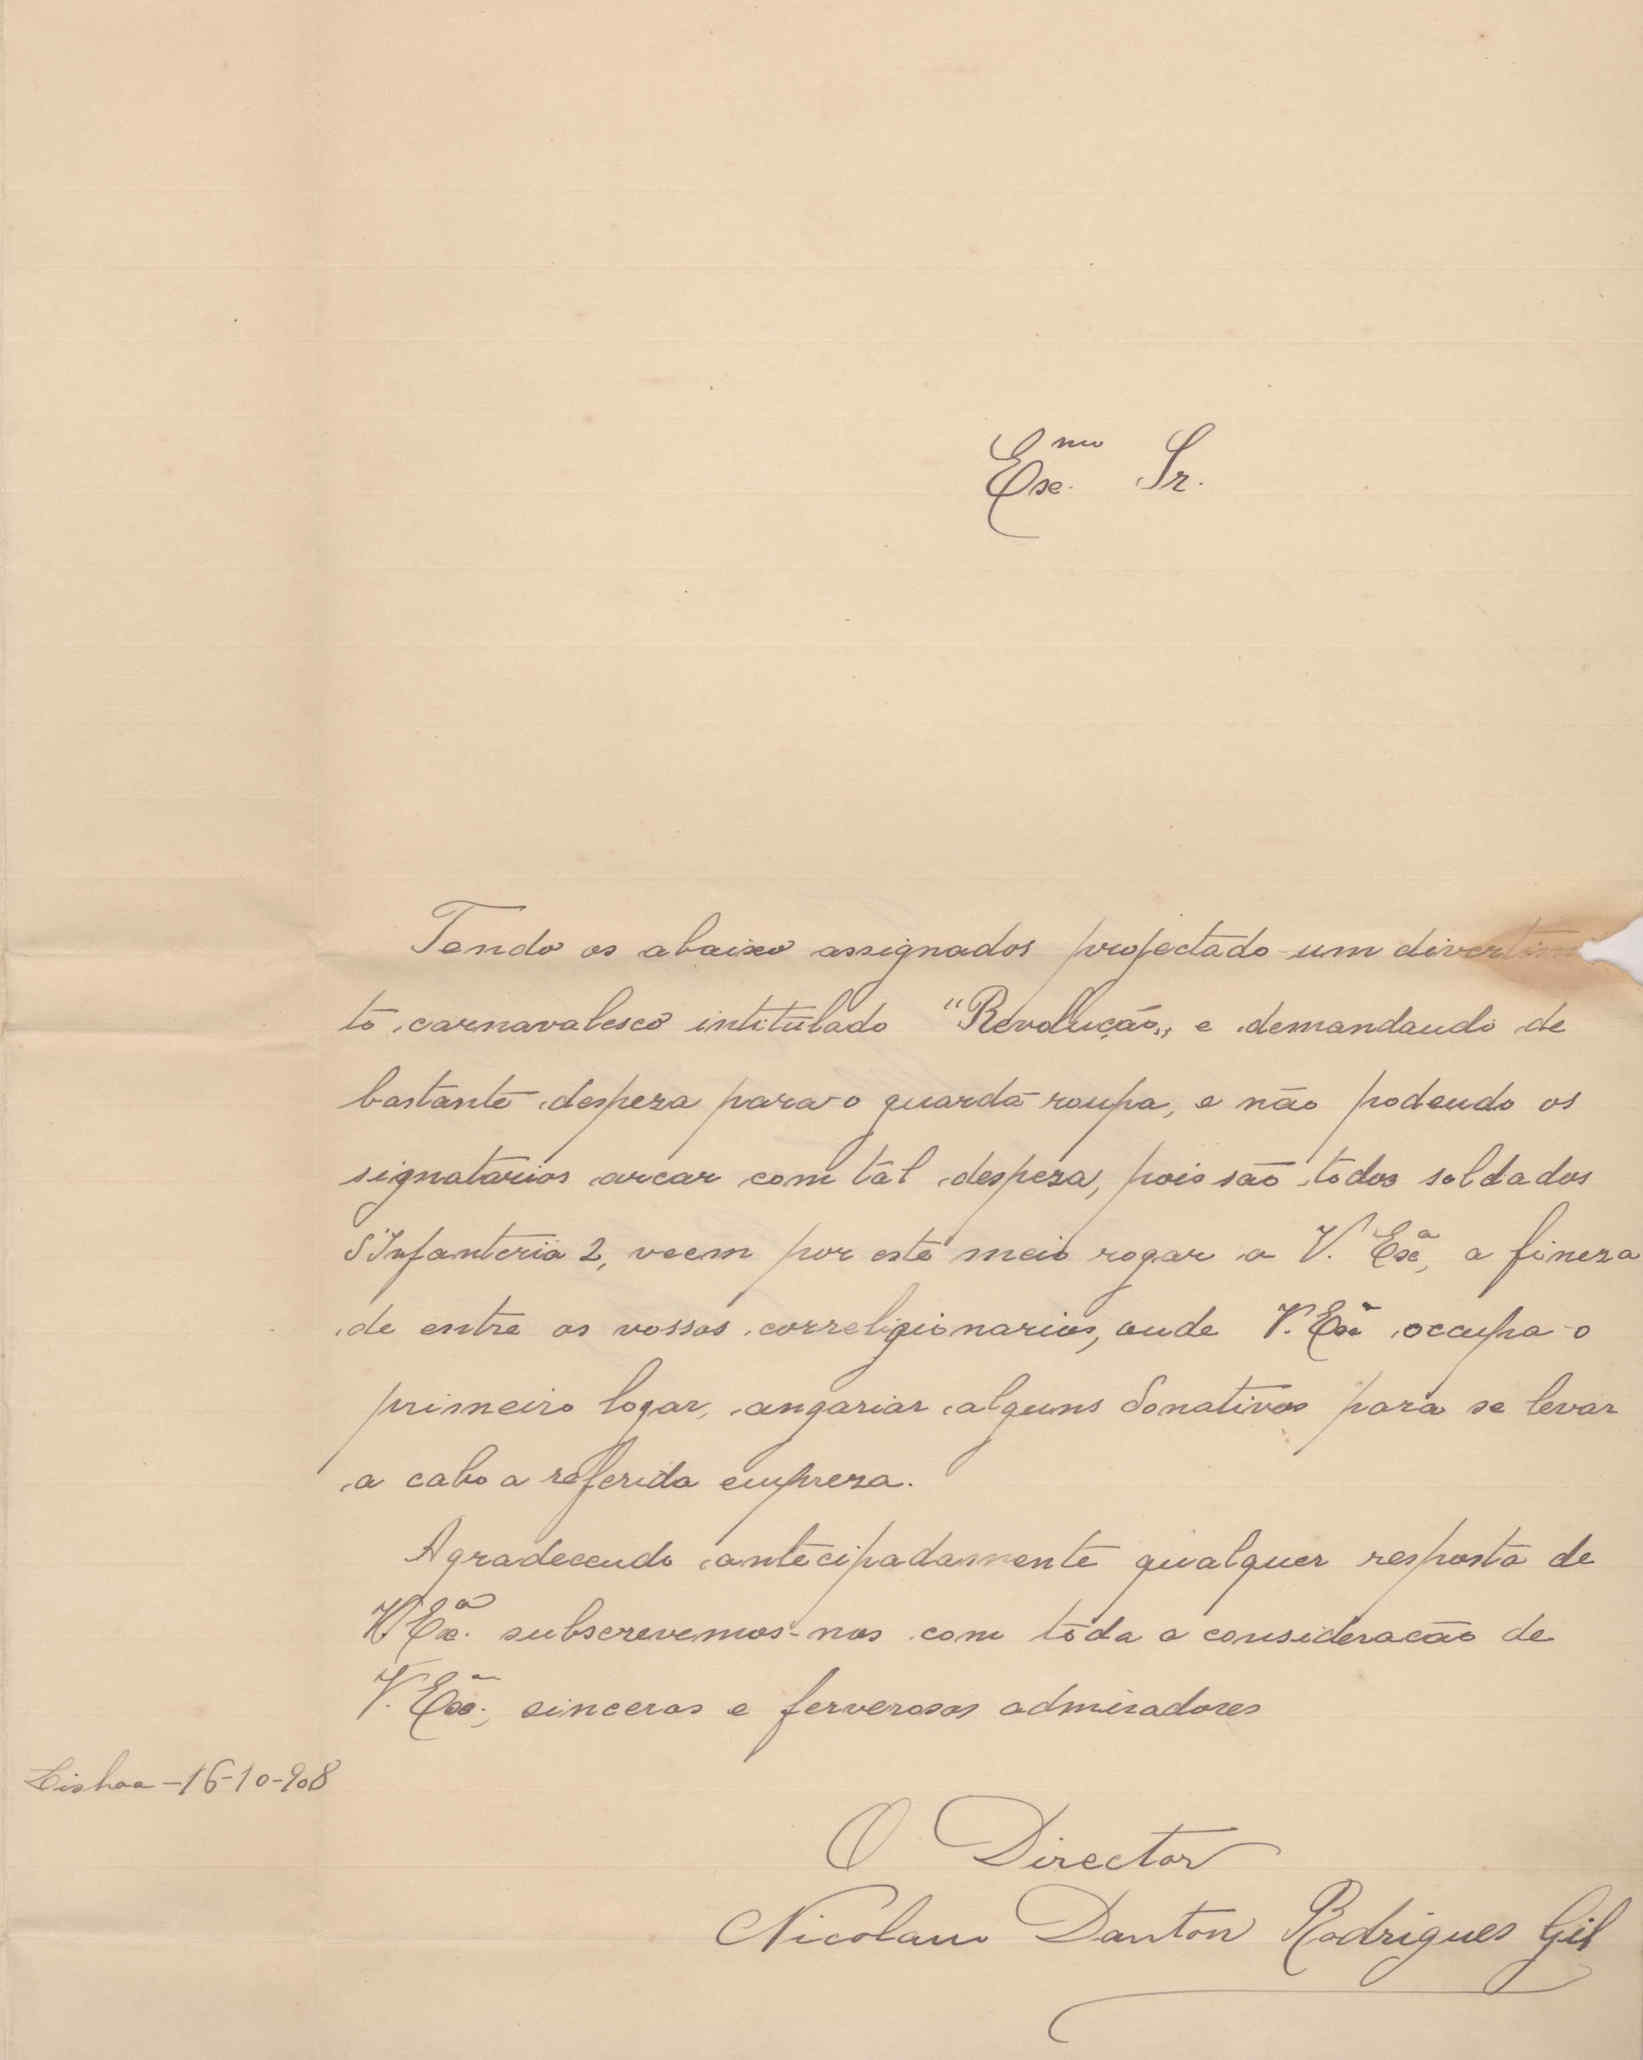 Exc.mo Sr.
Tendo os abaixo assignados projectado um divertim
to carnavalesco intitulado "Revolução„ e demandando de
bastante despeza para o guarda-roupa, e não podendo os
signatarios arcar com tal despeza, pois são todos soldados
d'Infanteria 2, veem por este meio rogar a V. Exc.a, a fineza
de entre os vossos correligionarios, onde V. Exc.a occupa o
primeiro logar, angariar alguns donativos para se levar
a cabo a referida empreza.
Agradecendo antecipadamente qualquer resposta de
V. Exc.a subscrevemos-nos com toda a consideracão de
V. Exc.a, sinceros e ferverosos admiradores
Lisboa-16-10-908
O Director
Nicolau Danton Rodrigues Gil